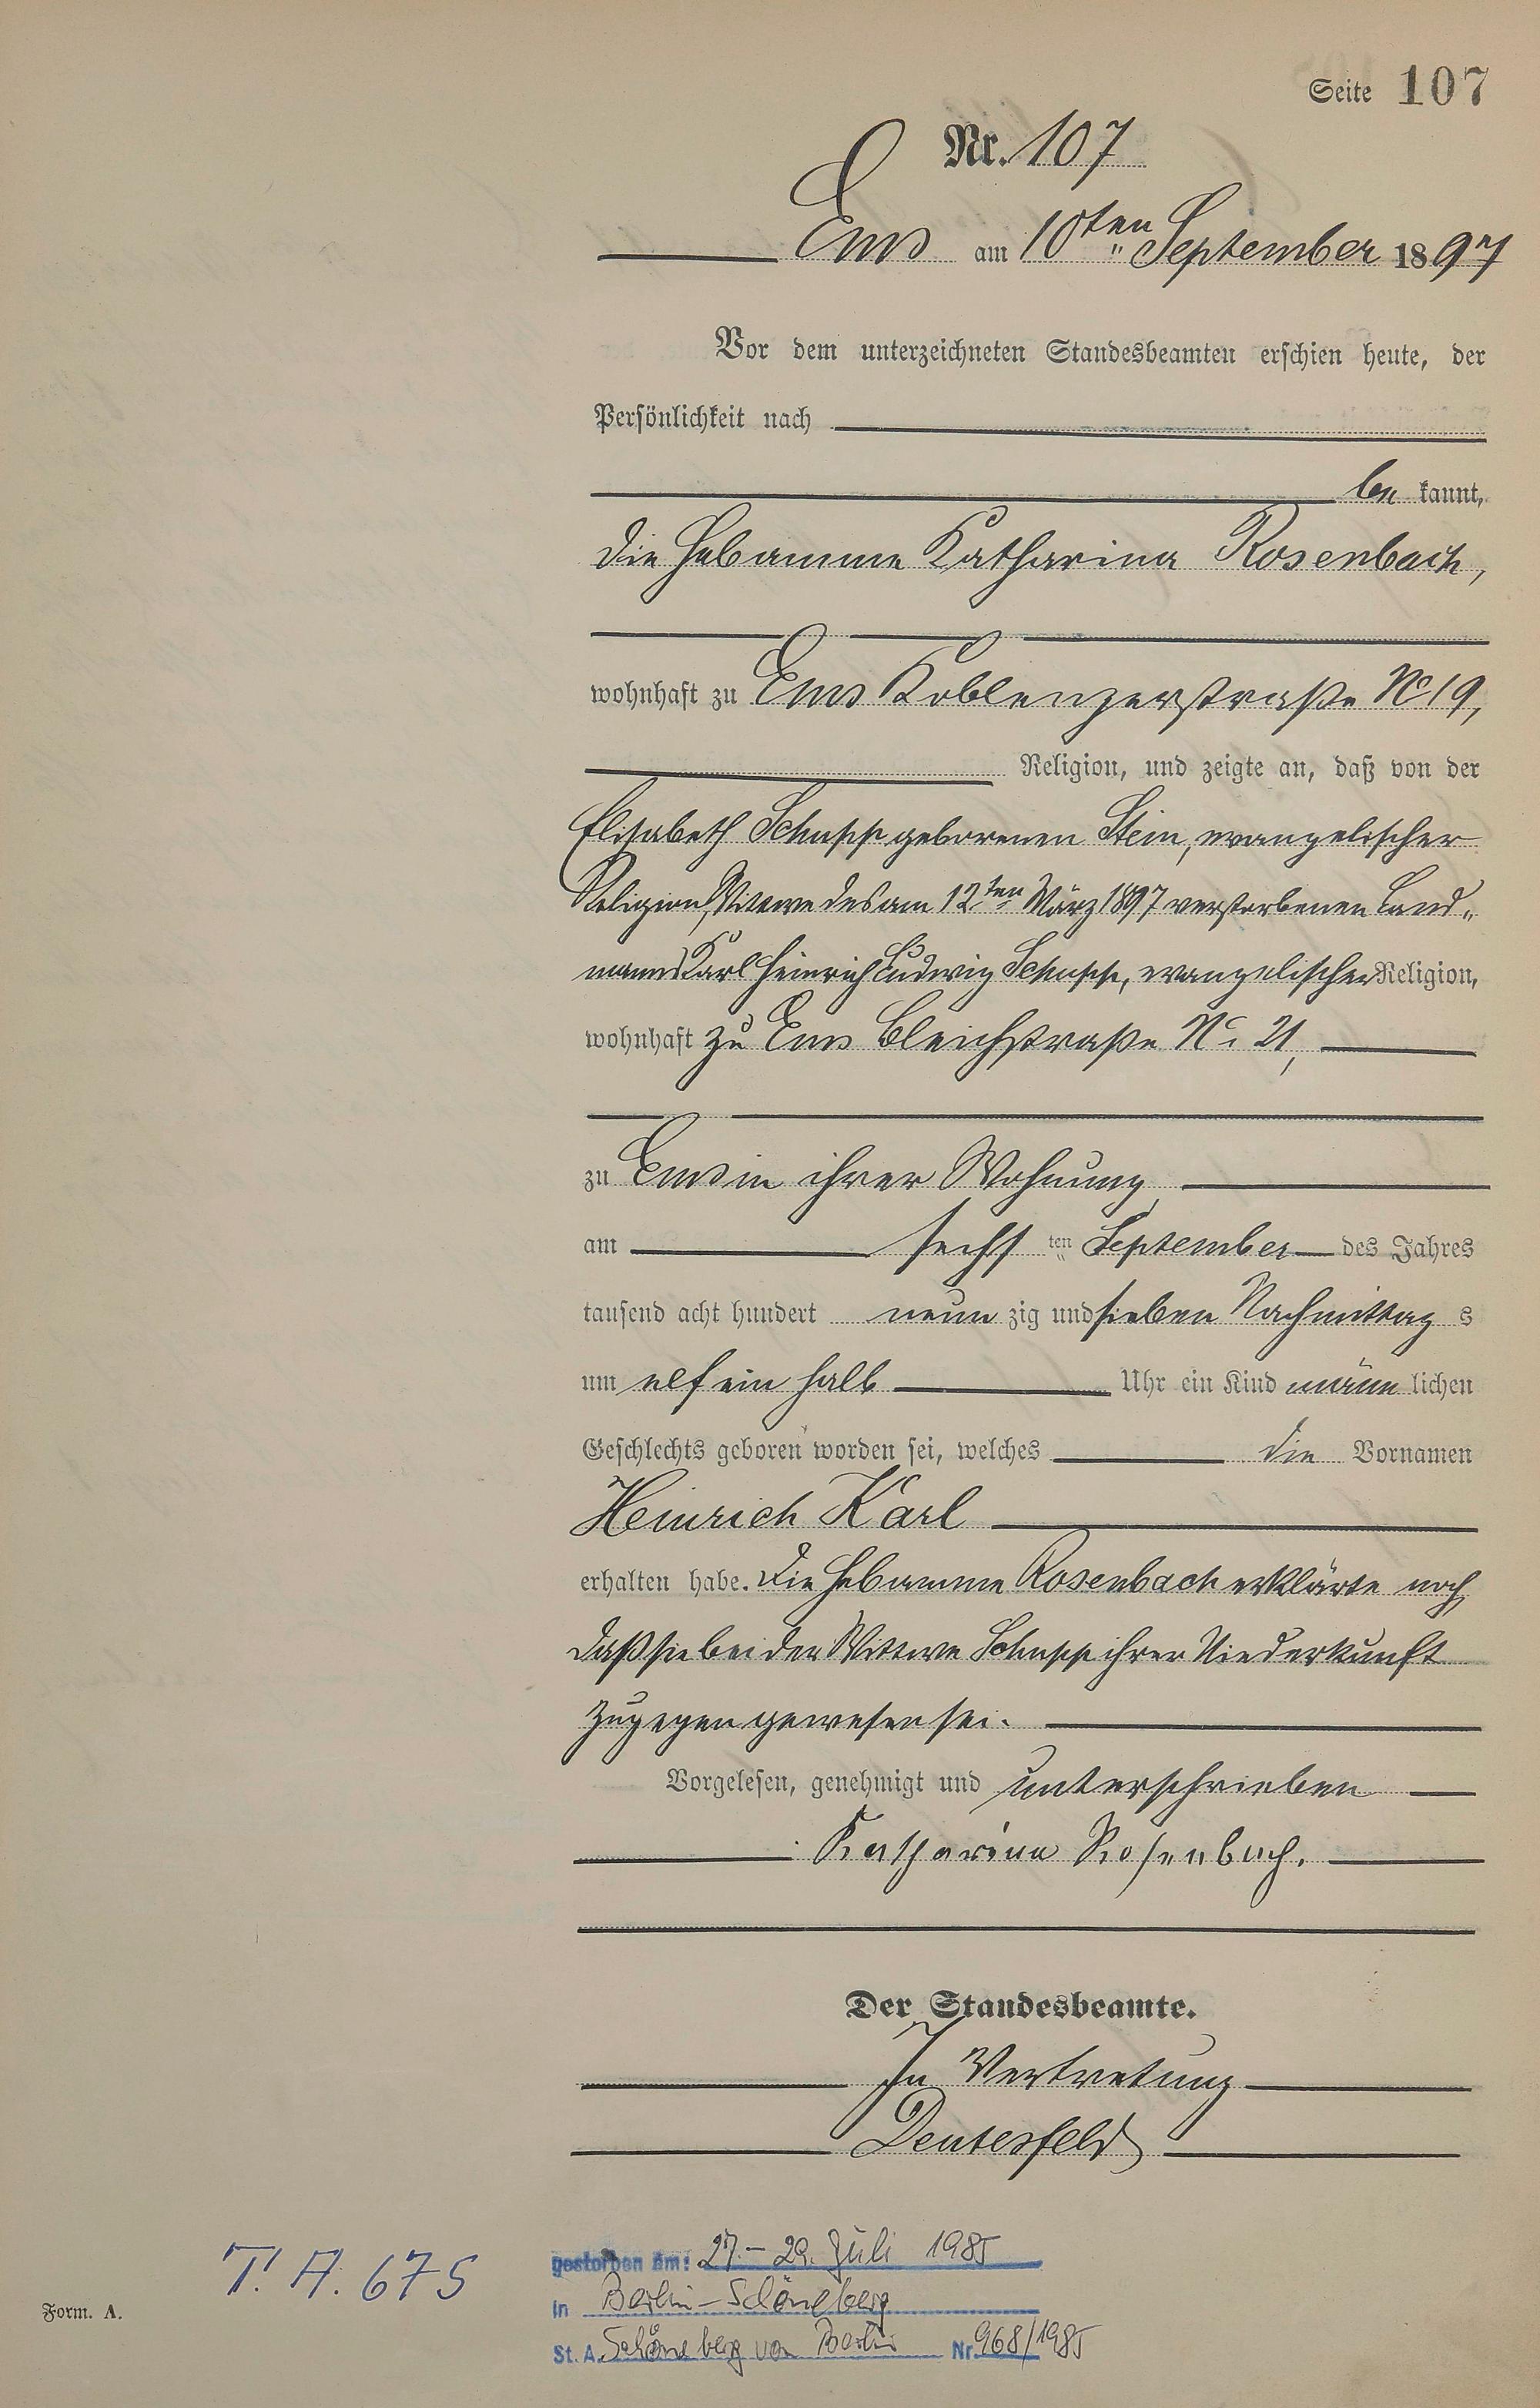 Seite 107
Nr. 107
Ems am 10ten September 1897
Vor dem unterzeichneten Standesbeamten erschien heute, der
Persönlichkeit nach
be kannt,
die Hebamme Katharina Rosenbach,
wohnhaft zu Ems Koblenzerstraße No 19,
Religion, und zeigte an, daß von der
Elisabeth Schupp geborenen Stein, evangelischer
Religion, Wittwe des am 12ten März 1897 verstorbenen Land„
manns Karl Heinrich Ludwig Schupp, evangelischer Religion,
wohnhaft zu Ems Bleichstraße No 21,
zu Ems in ihrer Wohnung
am sechs ten September des Jahres
tausend acht hundert neun zig und sieben Nachmittag s
um elf ein halb Uhr ein Kind männ lichen
Geschlechts geboren worden sei, welches die Vornamen
Heinrich Karl
erhalten habe. Die Hebamme Rosenbach erklärte noch,
daß sie bei der Wittwe Schupp ihrer Niederkunft
zugegen gewesen sei.
Vorgelesen, genehmigt und unterschrieben
Katharina Rosenbach.
Der Standesbeamte.
In Vertretung
Deutesfeld
T. A. 675
gestorben am: 27.– 29. Juli 1985
in Berlin-Schöneberg
St. A. Schöneberg von Berlin Nr. 968/1985
Form. A.